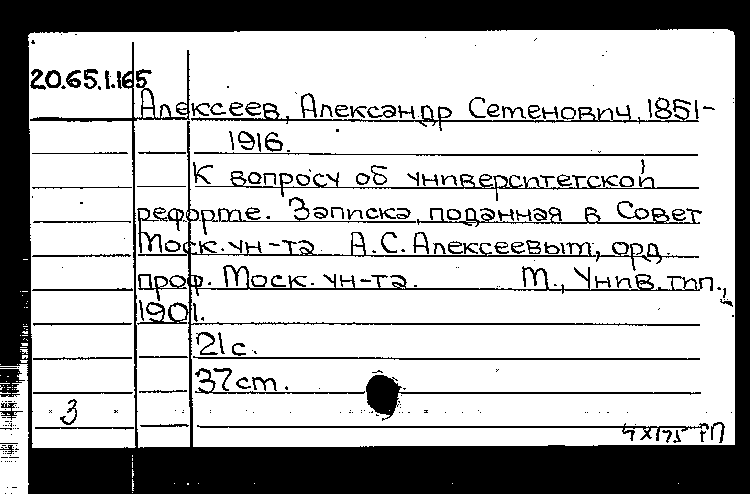 20.65.1.165
Алексеев, Александр Семенович, 1851-
1916.
К вопросу об университетской
реформе. Записка, поданная в Совет
Моск. ун-та А.С. Алексеевым, орд.
проф. Моск. ун-та. М., Унив. тип.,
1901.
21 с.
37 см.
3
РП